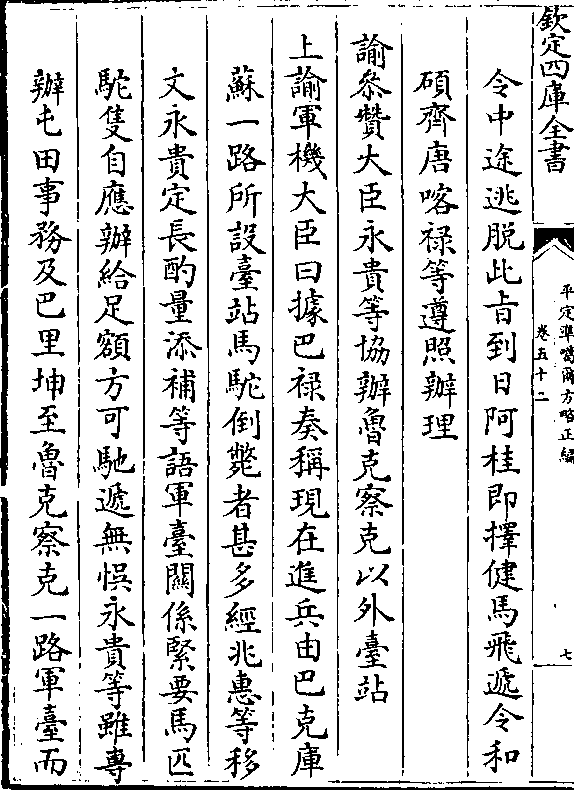 欽定四庫全書
平定準噶爾方略正編
卷五十二
七
令中途逃脱此旨到日阿桂即擇健馬飛遞令和
碩齊唐喀禄等遵照辦理
諭叅贊大臣永貴等協辦魯克察克以外臺站
上諭軍機大臣曰據巴禄奏稱現在進兵由巴克庫
蘇一路所設臺站馬駝倒斃者甚多經兆惠等移
文永貴定長酌量添補等語軍臺關係緊要馬匹
駝隻自應辦給足額方可馳遞無悞永貴等雖專
辦屯田事務及巴里坤至魯克察克一路軍臺而